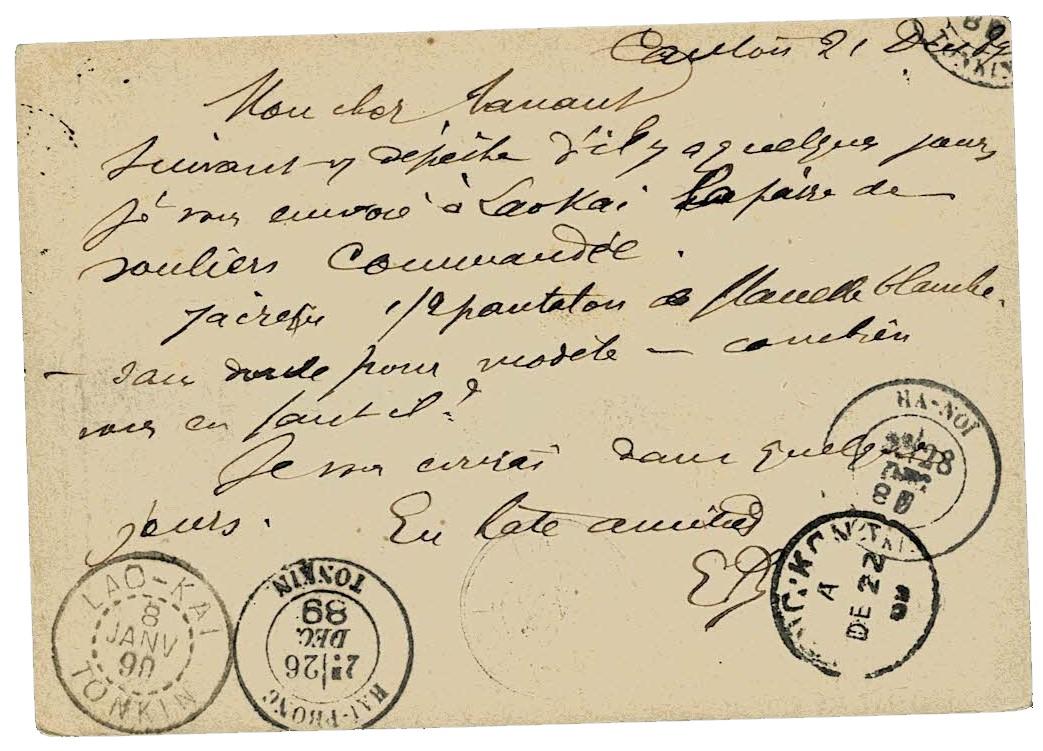 Canton 21 Déc 89
Mon cher
Suivant v/ dépêche d'il y a quelques jours
Je vous envoie à Laokai la paire de
souliers commandée.
J'ai reçu 1/2 pantalon de flanelle blanche.
— sans doute pour modèle — combien
vous en faut il?
Je vous écrirai dans quelques
jours. En hâte amitiés
HA-NOI
28
DEC
89
KONG
A
DE 22
89
LAO-KAI
8
JANV
90
TONKIN
HAI-PHONG
26
DEC
89
TONKIN
TONKIN